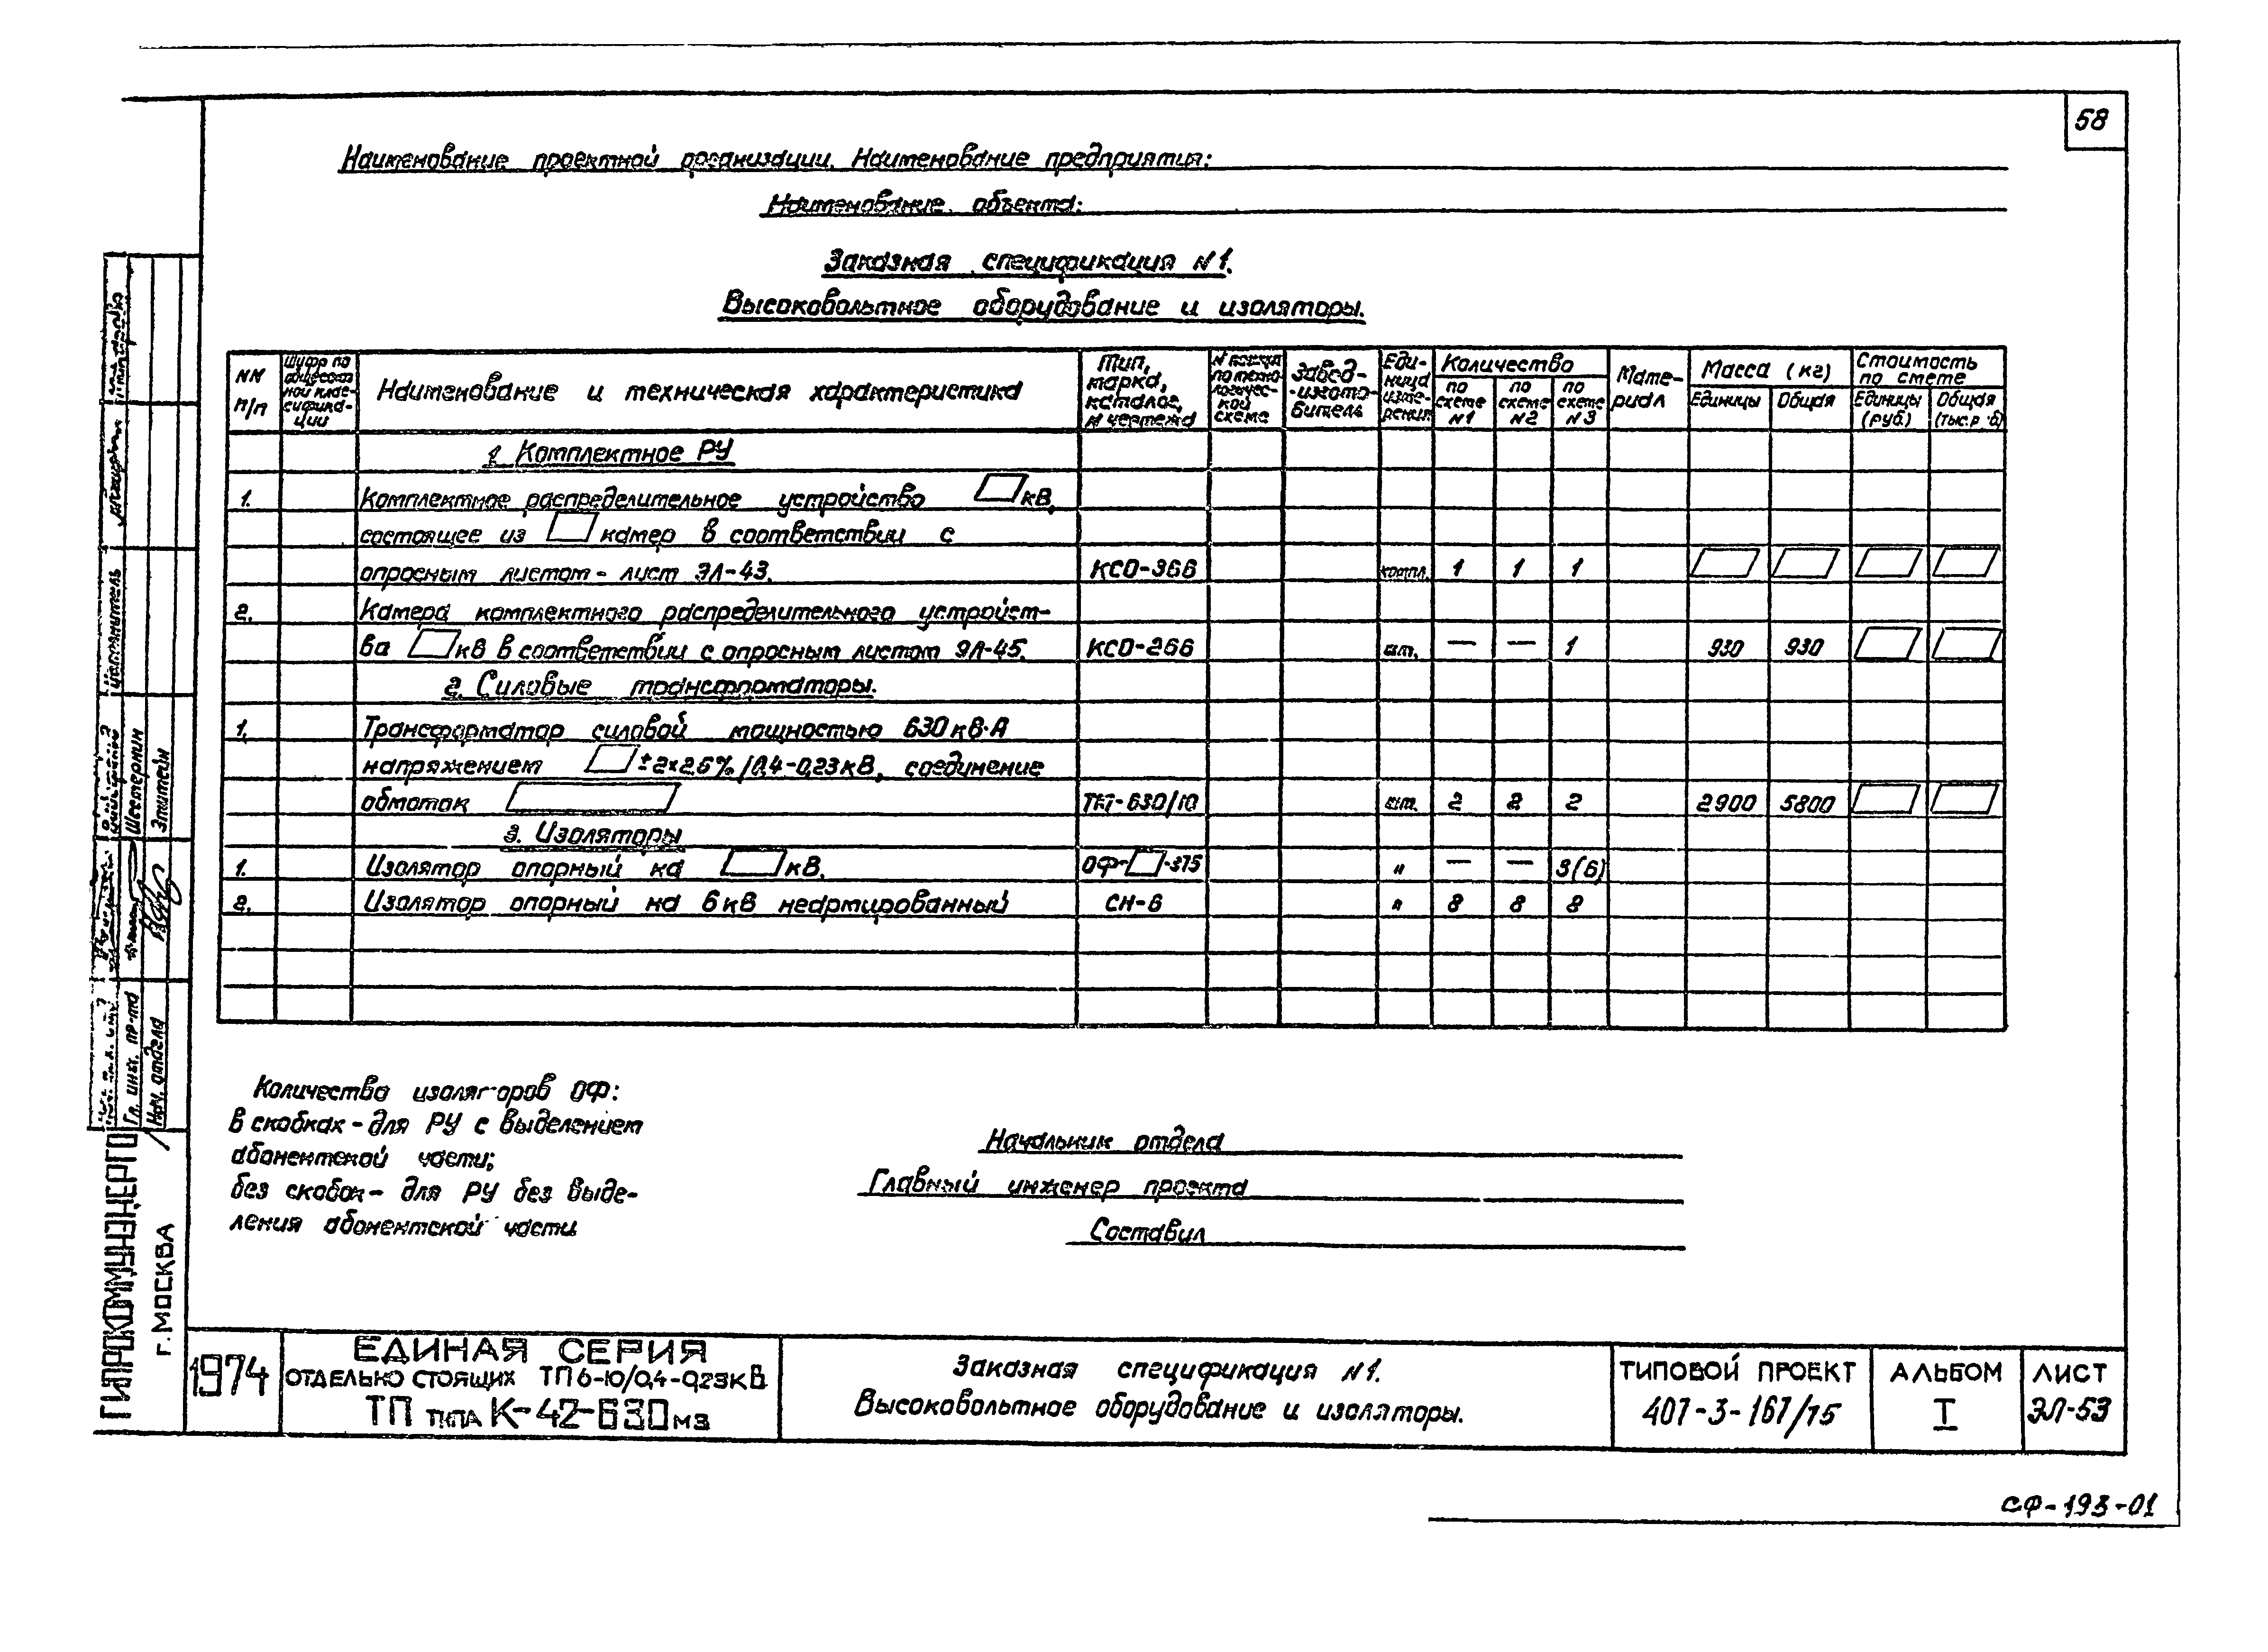 58
Наименование проектной организации. Наименование предприятия:
Наименование объекта:
Заказная спецификация N1.
Высоковольтное оборудование и изоляторы.
NN п/п
Шифр по классификации
Наименование и техническая характеристика
Тип, марка, каталог, N чертежа
N позиции по технологической схеме
Завод-изготовитель
Единица измерения
Количество
по схеме N1
по схеме N2
по схеме N3
Материал
Масса (кг)
Единицы
Общая
Стоимость по смете
Единицы (руб.)
Общая
1. Комплектное РУ
1. Комплектное распределительное устройство кВ,
состоящее из камер в соответствии с
опросным листом - лист ЭЛ-43. КСО-366 компл. 1 1 1
2. Камера комплектного распределительного устройст-
ва кВ в соответствии с опросным листом ЭЛ-45. КСО-266 шт. — — 1 930 930
2. Силовые трансформаторы.
1. Трансформатор силовой мощностью 630 кВ·А
напряжением ±2×2.5% /0,4-0,23кВ, соединение
обмоток ТМ-630/10 шт. 2 2 2 2900 5800
3. Изоляторы
1. Изолятор опорный на кВ. ОФ- -375 " — — 3(6)
2. Изолятор опорный на 6 кВ неармированный СН-6 " 8 8 8
Количество изоляторов ОФ:
в скобках - для РУ с выделением
абонентской части;
без скобок - для РУ без выде-
ления абонентской части
Начальник отдела
Главный инженер проекта
Составил
ГИПРОКОММУНЭНЕРГО
г. МОСКВА
Гл. инж. пр-та
Нач. отдела
Шестернин
Эпштейн
Исполнитель
1974
ЕДИНАЯ СЕРИЯ
ОТДЕЛЬНО СТОЯЩИХ ТП 6-10/0,4-0,23КВ
ТП типа К-42-630 м3
Заказная спецификация N1.
Высоковольтное оборудование и изоляторы.
ТИПОВОЙ ПРОЕКТ
407-3-167/75
АЛЬБОМ
I
ЛИСТ
ЭЛ-53
СФ-193-01